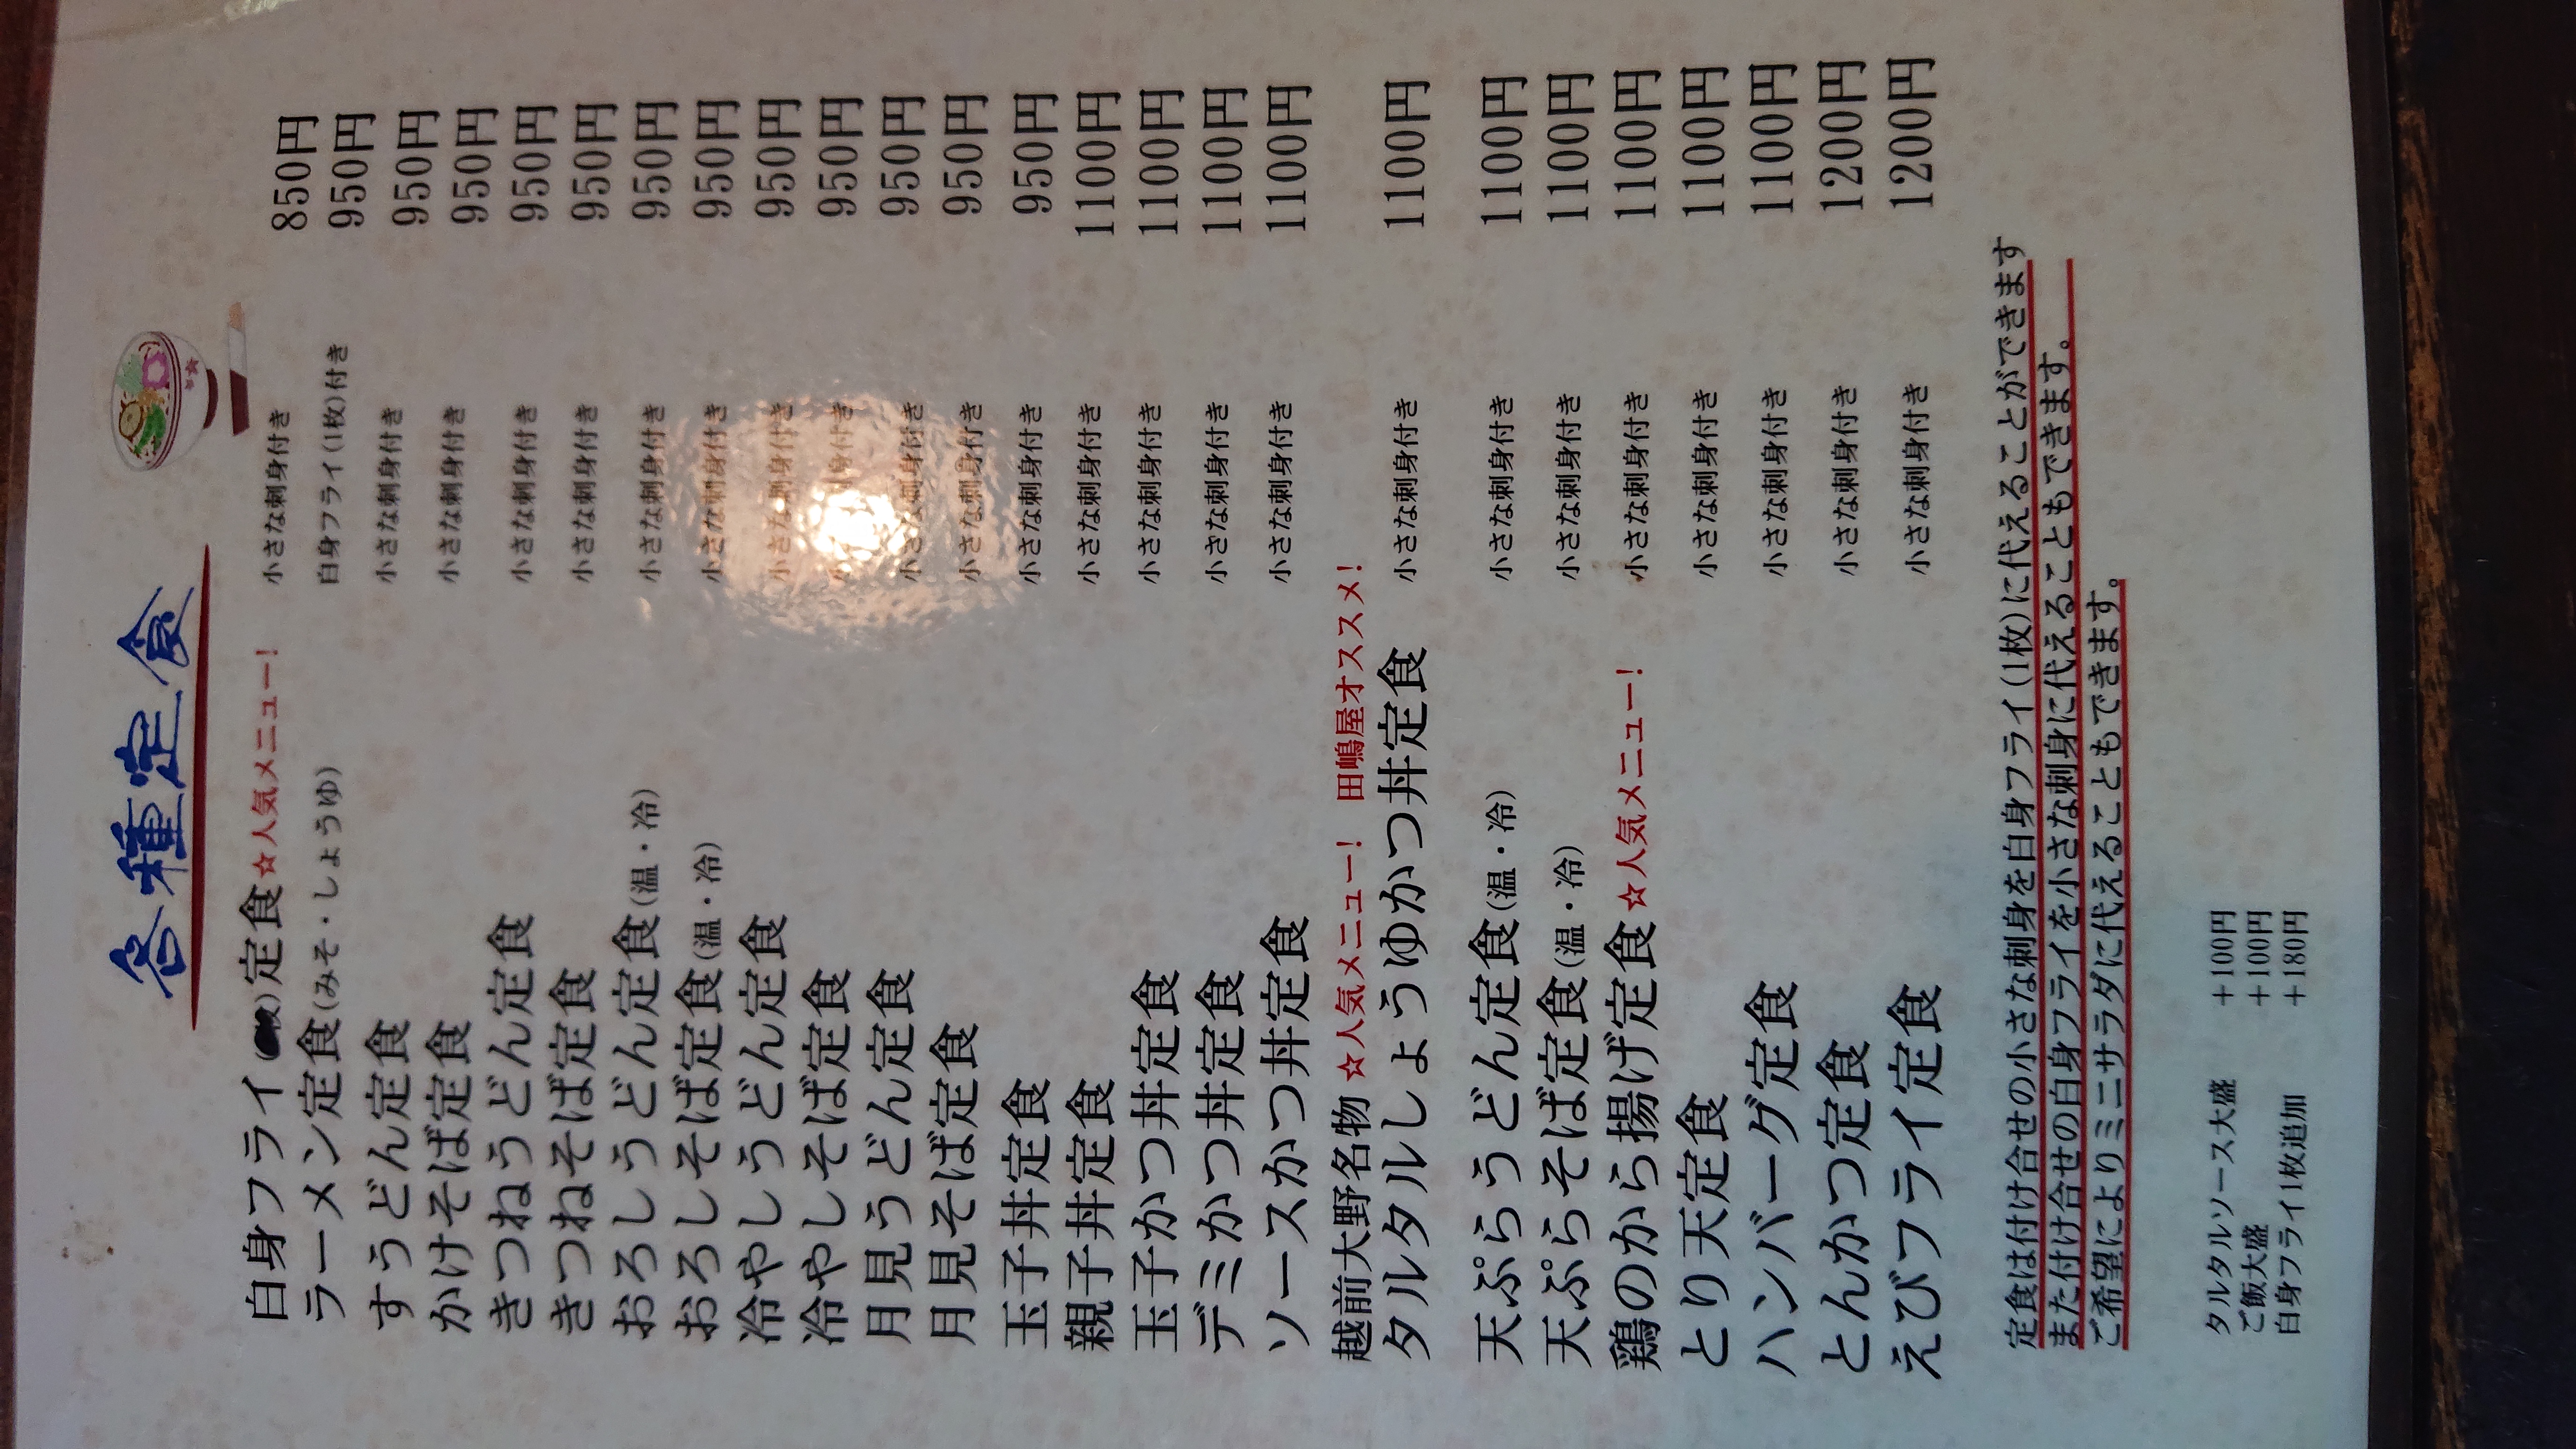 各種定食
白身フライ( 枚)定食 ☆人気メニュー! 小さな刺身付き 850円
ラーメン定食(みそ・しょうゆ) 白身フライ(1枚)付き 950円
すうどん定食 小さな刺身付き 950円
かけそば定食 小さな刺身付き 950円
きつねうどん定食 小さな刺身付き 950円
きつねそば定食 小さな刺身付き 950円
おろしうどん定食(温・冷) 小さな刺身付き 950円
おろしそば定食(温・冷) 小さな刺身付き 950円
冷やしうどん定食 小さな刺身付き 950円
冷やしそば定食 小さな刺身付き 950円
月見うどん定食 小さな刺身付き 950円
月見そば定食 小さな刺身付き 950円
玉子丼定食 小さな刺身付き 950円
親子丼定食 小さな刺身付き 1100円
玉子かつ丼定食 小さな刺身付き 1100円
デミかつ丼定食 小さな刺身付き 1100円
ソースかつ丼定食 小さな刺身付き 1100円
越前大野名物 ☆人気メニュー! 田嶋屋オススメ!
タルタルしょうゆかつ丼定食 小さな刺身付き 1100円
天ぷらうどん定食(温・冷) 小さな刺身付き 1100円
天ぷらそば定食(温・冷) 小さな刺身付き 1100円
鶏のから揚げ定食 ☆人気メニュー! 小さな刺身付き 1100円
とり天定食 小さな刺身付き 1100円
ハンバーグ定食 小さな刺身付き 1100円
とんかつ定食 小さな刺身付き 1200円
えびフライ定食 小さな刺身付き 1200円
定食は付け合せの小さな刺身を白身フライ(1枚)に代えることができます
また付け合せの白身フライを小さな刺身に代えることもできます。
ご希望によりミニサラダに代えることもできます。
タルタルソース大盛 +100円
ご飯大盛 +100円
白身フライ1枚追加 +180円